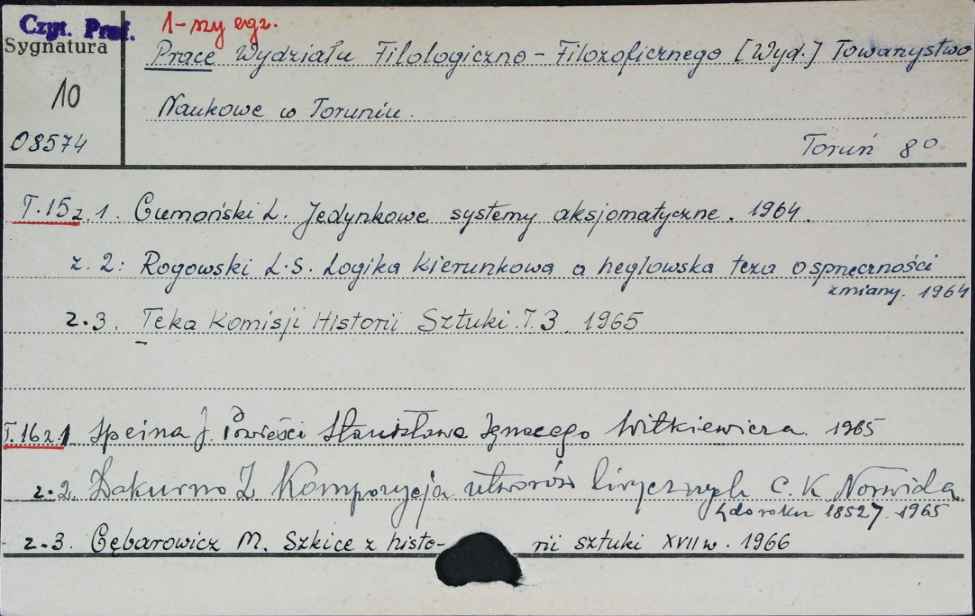 Czyt. Prof. 1-szy egz.
Sygnatura
10
08574
Prace Wydziału Filologiczno-Filozoficznego [Wyd.] Towarzystwo
Naukowe w Toruniu.
Toruń 8°
T.15 z.1. Gumański L. Jedynkowe systemy aksjomatyczne. 1964.
z.2: Rogowski L.S. Logika kierunkowa a heglowska teza o sprzeczności
zmiany. 1964
z.3. Teka Komisji Historii Sztuki. T.3. 1965
T.16 z.1 Speina J. Powieści Stanisława Ignacego Witkiewicza. 1965
z.2. Dokurno Z. Kompozycja utworów lirycznych C.K. Norwida
[do roku 1852]. 1965
z.3. Gębarowicz M. Szkice z histo-rii sztuki XVII w. 1966